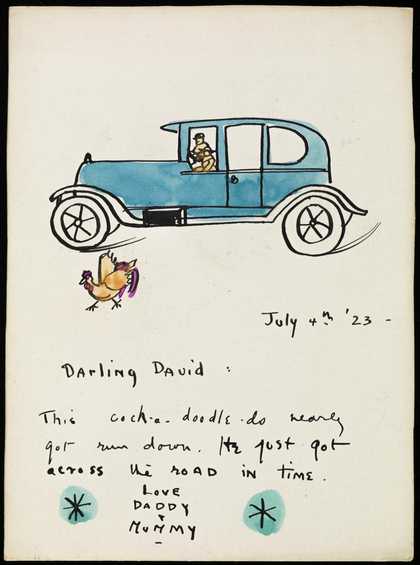 July 4th '23 -
Darling David :
This cock-a-doodle-do nearly
got run down. He just got
across the road in time.
Love
Daddy
+
Mummy